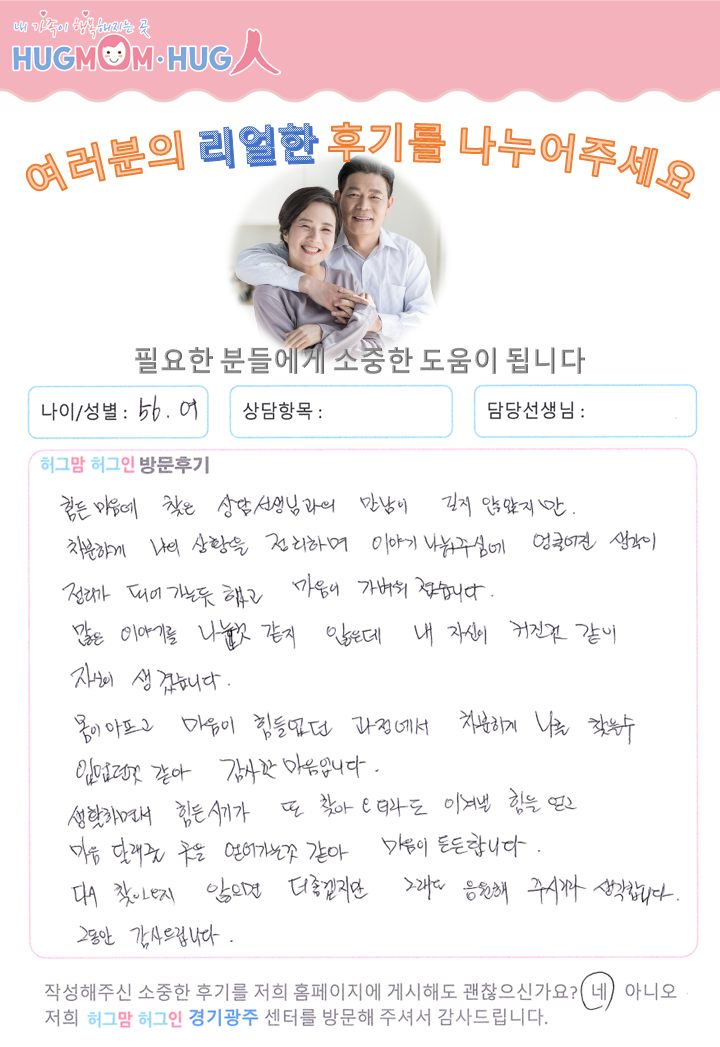 내 가족이 행복해지는 곳
HUGMOM·HUG人
여러분의 리얼한 후기를 나누어주세요
필요한 분들에게 소중한 도움이 됩니다
나이/성별 : 56. 여
상담항목 :
담당선생님 :
허그맘 허그인 방문후기
힘든 마음에 찾은 상담선생님과의 만남이 길지 않았지만.
차분하게 나의 상황을 정리하며 이야기 나눠주심에 엉클어진 생각이
정리가 되어가는듯 했고 마음이 가벼워 졌습니다.
많은 이야기를 나눈것 같지 않은데 내 자신이 커진것 같이
자신이 생겼습니다.
몸이 아프고 마음이 힘들었던 과정에서 차분하게 나를 찾을수
있었던것 같아 감사한 마음입니다.
생활하면서 힘든시기가 또 찾아 오더라도 이겨낼 힘을 얻고
마음 달래줄 곳을 얻어가는것 같아 마음이 든든합니다.
다시 찾아오지 않으면 더좋겠지만 그래도 응원해 주시리라 생각합니다.
그동안 감사드립니다.
작성해주신 소중한 후기를 저희 홈페이지에 게시해도 괜찮으신가요? 네 아니오
저희 허그맘 허그인 경기광주 센터를 방문해 주셔서 감사드립니다.